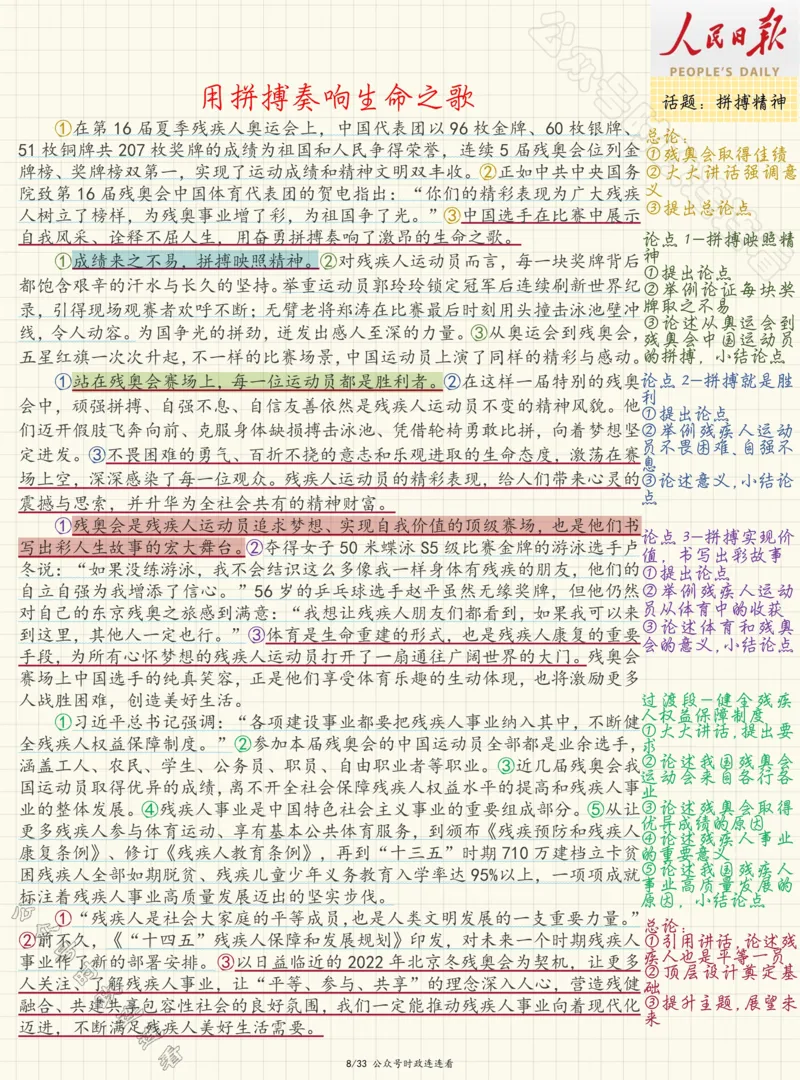 人民日报
PEOPLE'S DAILY
话题：拼搏精神
用拼搏奏响生命之歌
①在第 16 届夏季残疾人奥运会上，中国代表团以 96 枚金牌、60 枚银牌、
51 枚铜牌共 207 枚奖牌的成绩为祖国和人民争得荣誉，连续 5 届残奥会位列金
牌榜、奖牌榜双第一，实现了运动成绩和精神文明双丰收。②正如中共中央国务
院致第 16 届残奥会中国体育代表团的贺电指出：“你们的精彩表现为广大残疾
人树立了榜样，为残奥事业增了彩，为祖国争了光。”③中国选手在比赛中展示
自我风采、诠释不屈人生，用奋勇拼搏奏响了激昂的生命之歌。
①成绩来之不易，拼搏映照精神。②对残疾人运动员而言，每一块奖牌背后
都饱含艰辛的汗水与长久的坚持。举重运动员郭玲玲锁定冠军后连续刷新世界纪
录，引得现场观赛者欢呼不断；无臂老将郑涛在比赛最后时刻用头撞击泳池壁冲
线，令人动容。为国争光的拼劲，迸发出感人至深的力量。③从奥运会到残奥会，
五星红旗一次次升起，不一样的比赛场景，中国运动员上演了同样的精彩与感动。
①站在残奥会赛场上，每一位运动员都是胜利者。②在这样一届特别的残奥
会中，顽强拼搏、自强不息、自信友善依然是残疾人运动员不变的精神风貌。他
们迈开假肢飞奔向前、克服身体缺损搏击泳池、凭借轮椅勇敢比拼，向着梦想坚
定进发。③不畏困难的勇气、百折不挠的意志和乐观进取的生命态度，激荡在赛
场上空，深深感染了每一位观众。残疾人运动员的精彩表现，给人们带来心灵的
震撼与思索，并升华为全社会共有的精神财富。
①残奥会是残疾人运动员追求梦想、实现自我价值的顶级赛场，也是他们书
写出彩人生故事的宏大舞台。②夺得女子 50 米蝶泳 S5 级比赛金牌的游泳选手卢
冬说：“如果没练游泳，我不会结识这么多像我一样身体有残疾的朋友，他们的
自立自强为我增添了信心。”56 岁的乒乓球选手赵平虽然无缘奖牌，但他仍然
对自己的东京残奥之旅感到满意：“我想让残疾人朋友们都看到，如果我可以来
到这里，其他人一定也行。”③体育是生命重建的形式，也是残疾人康复的重要
手段，为所有心怀梦想的残疾人运动员打开了一扇通往广阔世界的大门。残奥会
赛场上中国选手的纯真笑容，正是他们享受体育乐趣的生动体现，也将激励更多
人战胜困难，创造美好生活。
①习近平总书记强调：“各项建设事业都要把残疾人事业纳入其中，不断健
全残疾人权益保障制度。”②参加本届残奥会的中国运动员全部都是业余选手，
涵盖工人、农民、学生、公务员、职员、自由职业者等职业。③近几届残奥会我
国运动员取得优异的成绩，离不开全社会保障残疾人权益水平的提高和残疾人事
业的整体发展。④残疾人事业是中国特色社会主义事业的重要组成部分。⑤从让
更多残疾人参与体育运动、享有基本公共体育服务，到颁布《残疾预防和残疾人
康复条例》、修订《残疾人教育条例》，再到“十三五”时期 710 万建档立卡贫
困残疾人全部如期脱贫、残疾儿童少年义务教育入学率达 95%以上，一项项成就
标注着残疾人事业高质量发展迈出的坚实步伐。
①“残疾人是社会大家庭的平等成员，也是人类文明发展的一支重要力量。”
②前不久，《“十四五”残疾人保障和发展规划》印发，对未来一个时期残疾人
事业作了新的部署安排。③以日益临近的 2022 年北京冬残奥会为契机，让更多
人关注、了解残疾人事业，让“平等、参与、共享”的理念深入人心，营造残健
融合、共建共享包容性社会的良好氛围，我们一定能推动残疾人事业向着现代化
迈进，不断满足残疾人美好生活需要。
总论：
①残奥会取得佳绩
②大大讲话强调意
义
③提出总论点
论点 1—拼搏映照精
神
①提出论点
②举例论证每块奖
牌取之不易
③论述从奥运会到
残奥会中国运动员
的拼搏，小结论点
论点 2—拼搏就是胜
利
①提出论点
②举例残疾人运动
员不畏困难、自强不
息
③论述意义，小结论
点
论点 3—拼搏实现价
值，书写出彩故事
①提出论点
②举例残疾人运动
员从体育中的收获
③论述体育和残奥
会的意义，小结论点
过渡段—健全残疾
人权益保障制度
①大大讲话，提出要
求
②论述我国残奥会
运动会来自各行各
业
③论述残奥会取得
优异成绩的原因
④论述残疾人事业
的重要意义
⑤论述我国残疾人
事业高质量发展的
原因，小结论点
总论：
①引用讲话，论述残
疾人也是平等一员
②顶层设计奠定基
础
③提升主题，展望未
来
8/33 公众号时政连连看